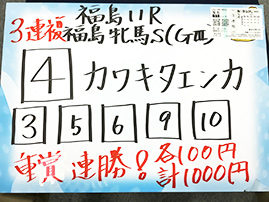 福島11R
3連複 福島牝馬S(GⅢ)
4 カワキタエンカ
3 5 6 9 10
重賞連勝! 各100円
計1000円